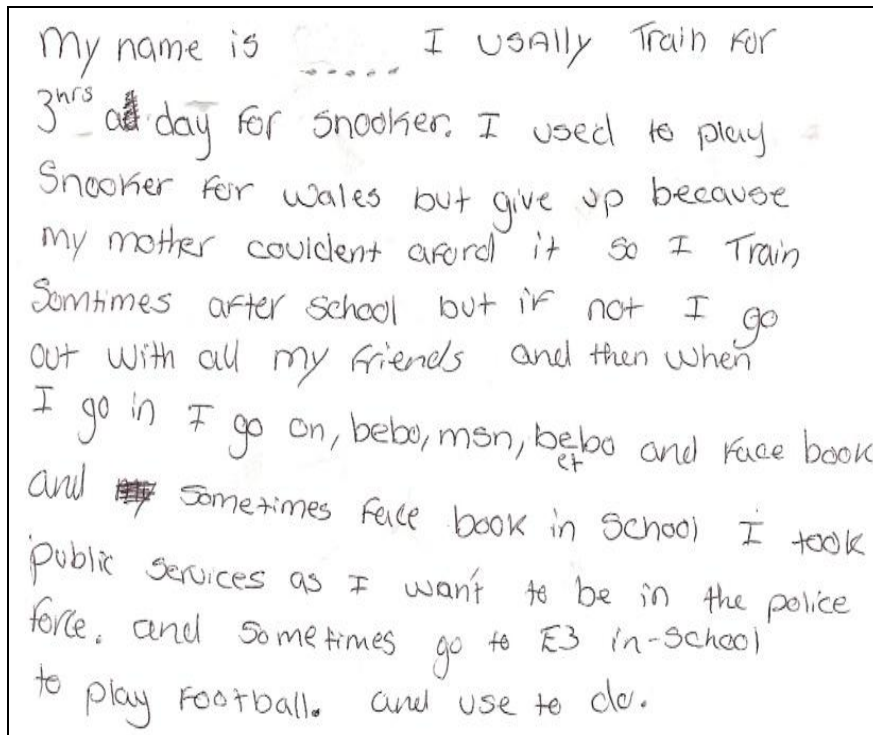 My name is ..... I usally Train for
3hrs a day for snooker. I used to play
Snooker for wales but give up because
my mother couldent aford it so I Train
Somtimes after school but if not I go
out with all my friends and then when
I go in I go on, bebo, msn, bebo and face book
et
and sometimes face book in School I took
public services as I wan't to be in the police
force. and sometimes go to E3 in-school
to play football. and use to do.